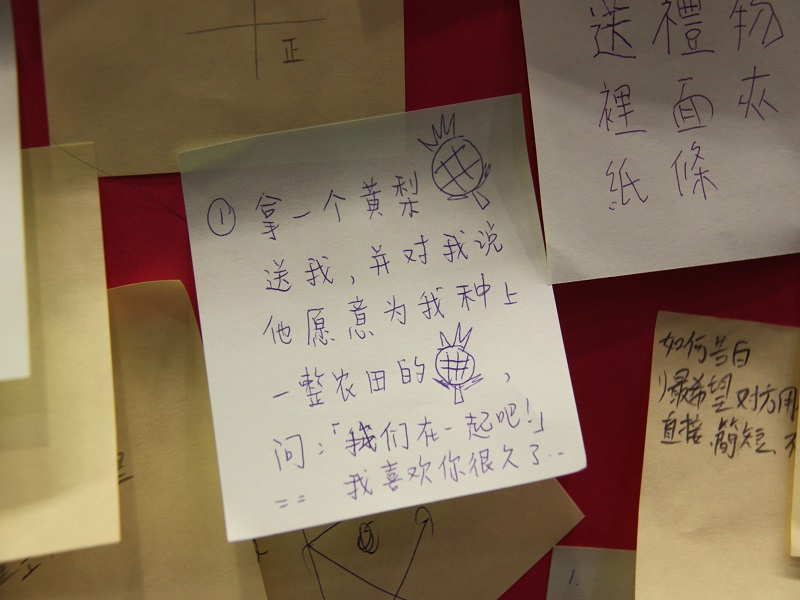 正
送禮物
裡面夾
紙條
① 拿一个黄梨
送我，并对我说
他愿意为我种上
一整农田的 ，
问：「我们在一起吧！」
== 我喜欢你很久了..
如何告白
最希望对方用
直接、簡短、不
1.